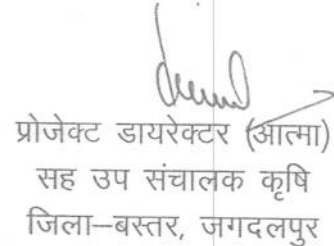 प्रोजेक्ट डायरेक्टर (आत्मा)
सह उप संचालक कृषि
जिला–बस्तर, जगदलपुर